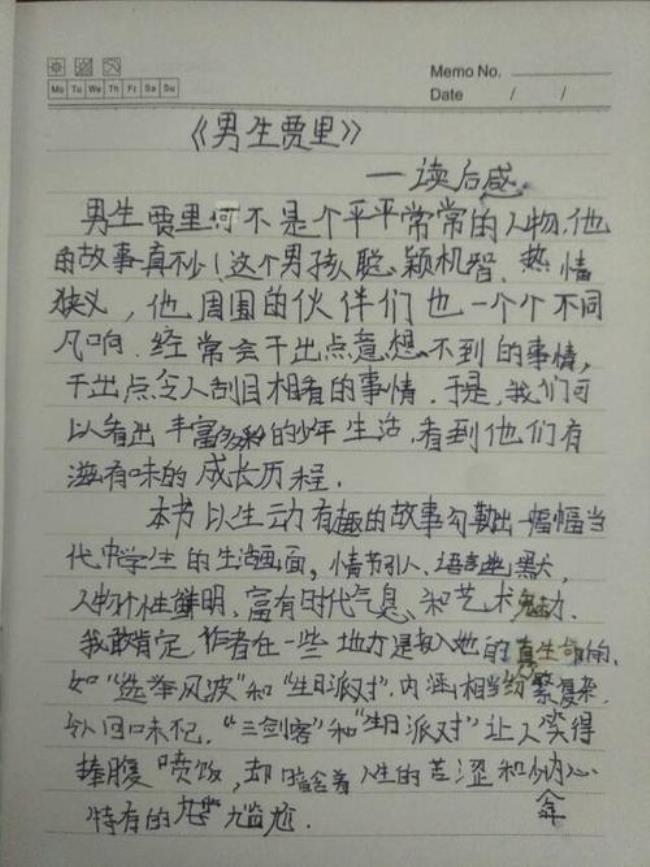 Memo No.
Mo Tu We Th Fr Sa Su
Date / /
《男生贾里》
—读后感
男生贾里可不是个平平常常的人物,他
的故事真不少!这个男孩聪颖机智、热情
狭义,他周围的伙伴们也一个个不同
凡响.经常会干出点意想不到的事情,
干出点令人刮目相看的事情.于是,我们可
以看出丰富多彩的少年生活,看到他们有
滋有味的成长历程.
本书以生动有趣的故事勾勒出一幅幅当
代中学生的生活画面,情节引人、语言幽默,
人物个性鲜明、富有时代气息、和艺术魅力.
我敢肯定,作者在一些地方是投入她的真生命的,
如“选举风波”和“生日派对”,内涵相当纷繁复杂,
回味不已.“三剑客”和“生日派对”让人笑得
捧腹喷饭,却暗含着人生的苦涩和内心
特有的尴尬.